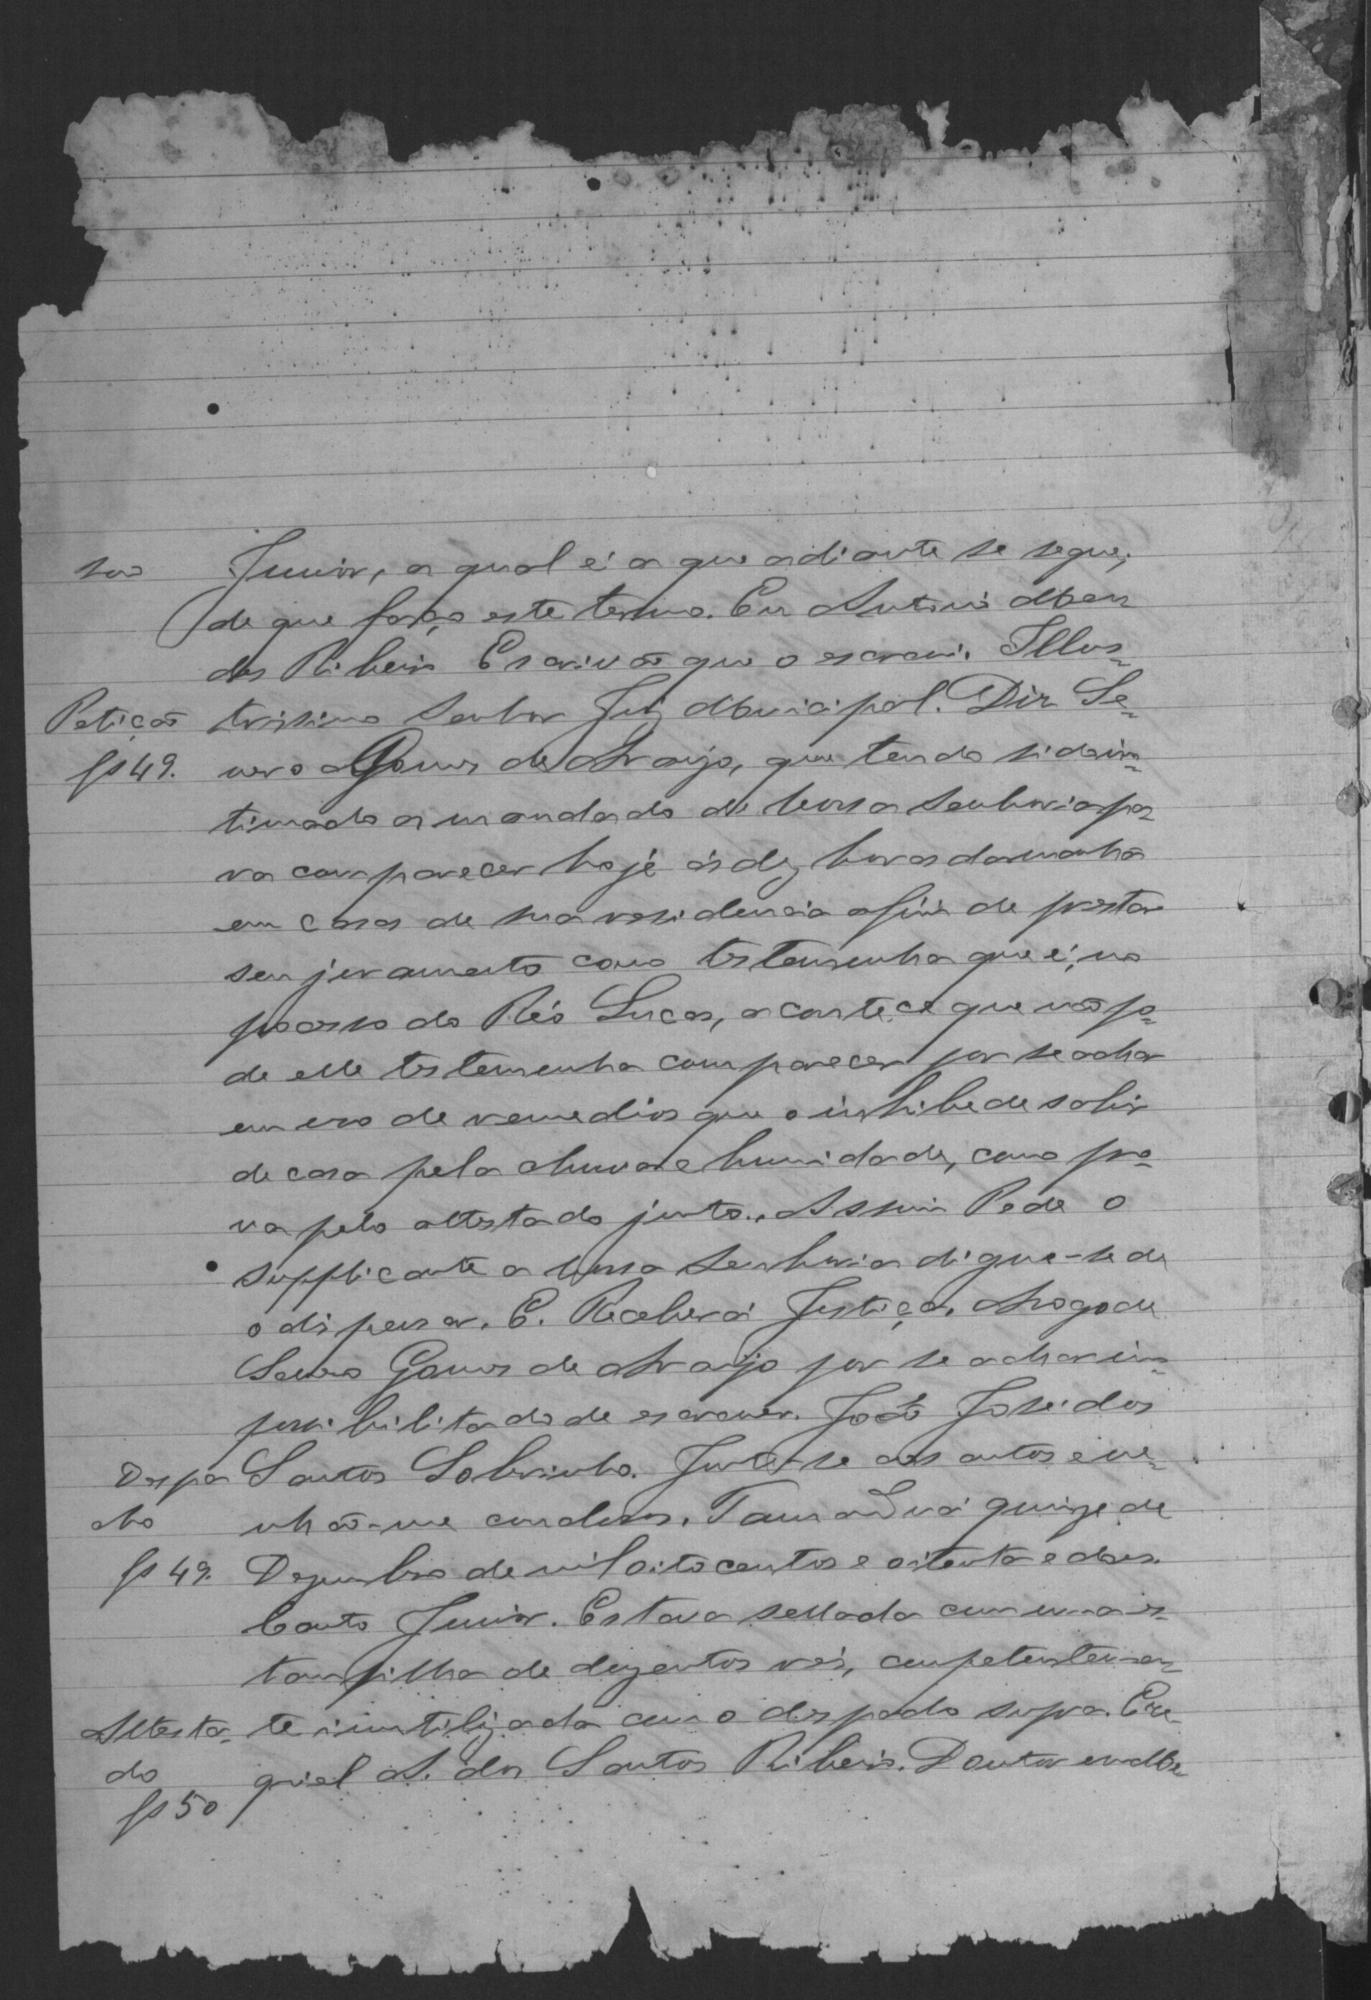 são Junior, a qual é a que adiante se segue;
de que faço este termo. Eu Antonio Men
des Ribeiro Escrivão que o escrevi. Illus-
Petição trissimo Senhor Juiz Municipal. Diz Se-
fs 49. vero Gomes de Araujo, que tendo sido in-
timado a mandado de Vossa Senhoria pa-
ra comparecer hoje ás dez horas da manhã
em casa de sua residencia afim de prestar
seu juramento como testemunha que é, no
processo do Réo Lucas, acontece que não po-
de elle testemunha comparecer por se achar
em uso de remedios que o inhibe de sahir
de casa pela chuva e humidade, como pro-
va pelo attestado junto. Assim Pede o
supplicante a Vossa Senhoria digne-se de
o dispensar. E. Receberá Justiça. Arogo de
Severo Gomes de Araujo por se achar im-
possibilitado de escrever. João José dos
Despa Santos Sobrinho. Junte-se aos autos e ve-
cho nhão-me conclusos. Tamanduá quinze de
fs 49. Dezembro de mil oitocentos e oitenta e dous.
Couto Junior. Estava sellada com uma es-
tampilha de duzentos réis, competentemen-
Attesta- te inutilizada com o despacho supra. Eze
do quiel A. dos Santos Ribeiro. Doutor em Me
fs 50